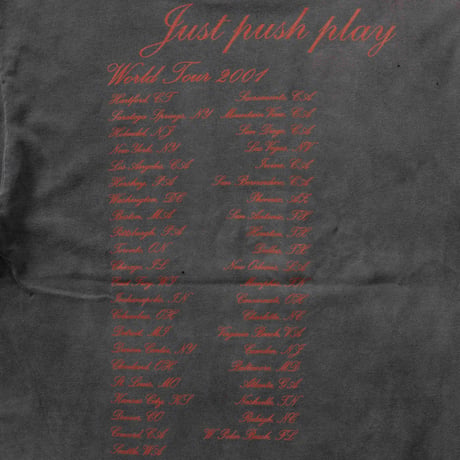 Just push play
World Tour 2001
Hartford, CT
Saratoga Springs, NY
Holmdel, NJ
New York, NY
Los Angeles, CA
Hershey, PA
Washington, DC
Boston, MA
Pittsburgh, PA
Toronto, ON
Chicago, IL
Indianapolis, IN
Columbus, OH
Detroit, MI
Darien Center, NY
Cleveland, OH
St Louis, MO
Kansas City, KS
Denver, CO
Concord, CA
Seattle, WA
Sacramento, CA
Mountain View, CA
San Diego, CA
Las Vegas, NV
Irvine, CA
San Bernardino, CA
Phoenix, AZ
San Antonio, TX
Houston, TX
Dallas, TX
New Orleans, LA
Memphis, TN
Cincinnati, OH
Charlotte, NC
Virginia Beach, VA
Camden, NJ
Baltimore, MD
Atlanta, GA
Nashville, TN
Raleigh, NC
W Palm Beach, FL